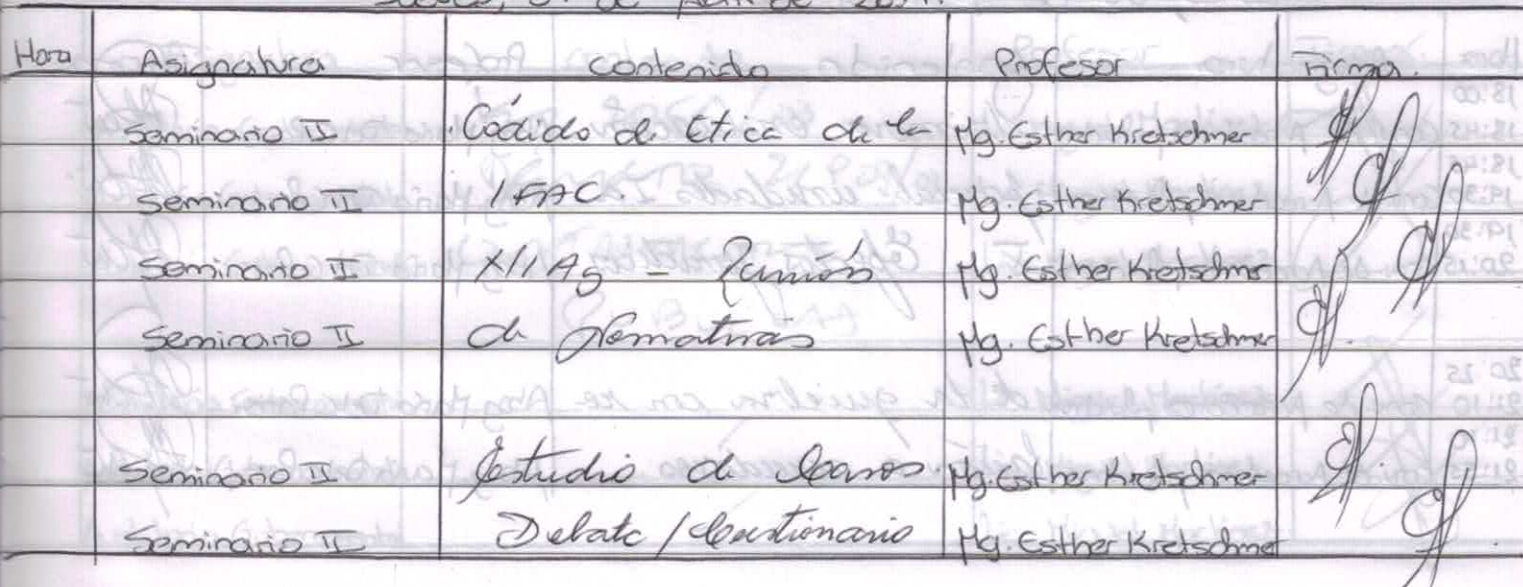 Hora Asignatura contenido Profesor Firma.
Seminario II Códido de Etica de la Mg. Esther Kretschmer
Seminario II IFAC. Mg. Esther Kretschmer
Seminario II Mg. Esther Kretschmer
Seminario II de Mg. Esther Kretschmer
Seminario II Estudio de Casos. Mg. Esther Kretschmer
Seminario II Debate / Cuestionario Mg. Esther Kretschmer